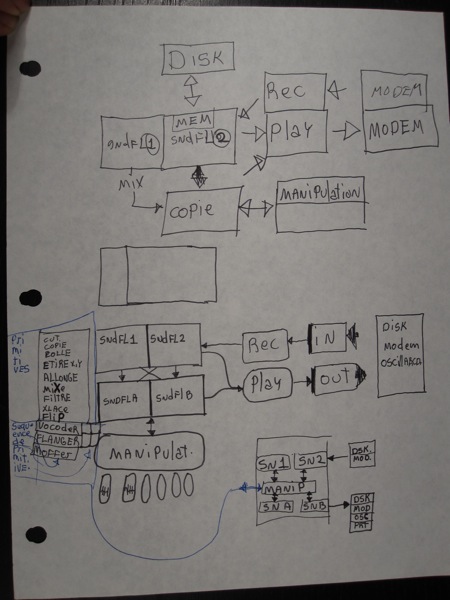 DISK
Rec
MODEM
MEM
SNdFL1
SNdFL2
Play
MODEM
MIX
COPIE
MANIPUlatION
Pri
mi
ti
VES
CUT
COPIE
ROLLE
ETIRE X,Y
ALLONGE
MiXe
FILTRE
XLACE
FLIP
SNdFL1
SNdFL2
Rec
iN
DISK
Modem
SNdFLA
SNdFlB
Play
OUT
Sequence
de
Primit.
IVE.
VocodeR
FLANGER
MANiPulat.
SN1
SN2
DSK.
MOD.
MANIP
SNA
SNB
DSK
MOD
OSC
PRT